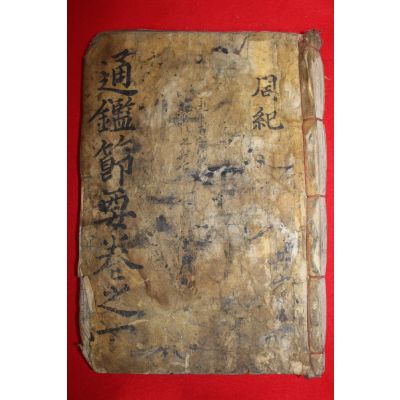 周紀
通鑑節要卷之一